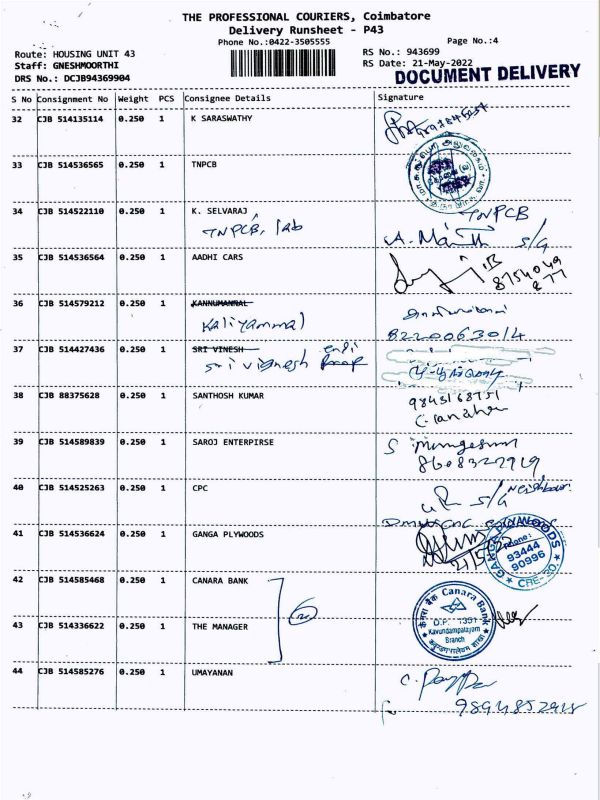 THE PROFESSIONAL COURIERS, Coimbatore
Delivery Runsheet - P43
Phone No.:0422-3505555
Page No.:4
Route: HOUSING UNIT 43
RS No.: 943699
Staff: GNESHMOORTHI
RS Date: 21-May-2022
DRS No.: DCJB94369904
DOCUMENT DELIVERY
S No Consignment No Weight PCS Consignee Details Signature
32 CJB 514135114 0.250 1 K SARASWATHY
33 CJB 514536565 0.250 1 TNPCB
34 CJB 514522110 0.250 1 K. SELVARAJ
TNPCB, lab
TNPCB
S/G
35 CJB 514536564 0.250 1 AADHI CARS
8754049
877
36 CJB 514579212 0.250 1 KANNUMANMAL
Kaliyammal
8220063014
37 CJB 514427436 0.250 1 SRI VINESH
Sri Vignesh
38 CJB 88375628 0.250 1 SANTHOSH KUMAR
9843168751
39 CJB 514589839 0.250 1 SAROJ ENTERPIRSE
S Murugesan
8608322969
40 CJB 514525263 0.250 1 CPC
S/G Neighbour
41 CJB 514536624 0.250 1 GANGA PLYWOODS
21/5/22
GANGA PLYWOODS
Phone:
93444
90996
CBE-30
42 CJB 514585468 0.250 1 CANARA BANK
43 CJB 514336622 0.250 1 THE MANAGER
2
Canara Bank
D.P. 1391
Kavundampalayam
Branch
44 CJB 514585276 0.250 1 UMAYANAN